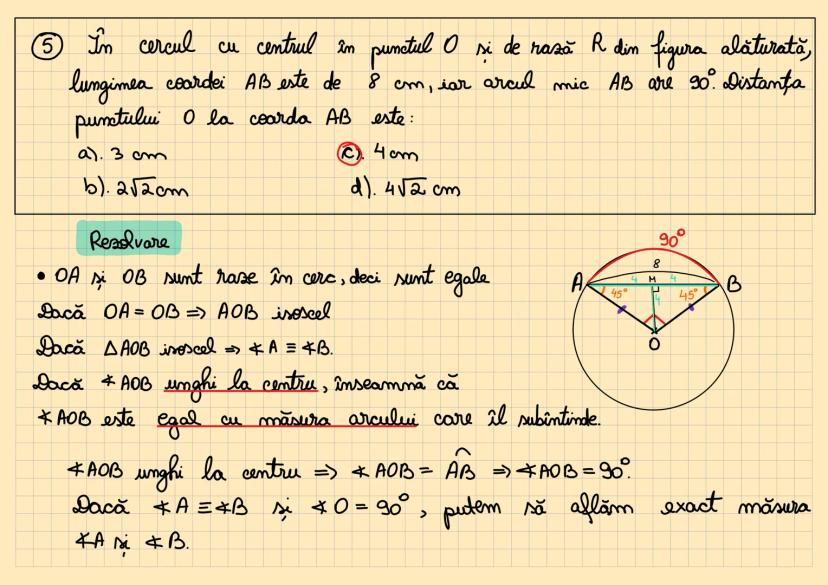 5 În cercul cu centrul în punctul O și de rază R din figura alăturată,
lungimea coardei AB este de 8 cm, iar arcul mic AB are 90°. Distanța
punctului O la coarda AB este:
a). 3 cm c). 4 cm
b). 2√2 cm d). 4√2 cm
Rezolvare
• OA și OB sunt raze în cerc, deci sunt egale
Dacă OA = OB ⇒ AOB isoscel
Dacă △AOB isoscel ⇒ ∢A ≡ ∢B.
Dacă ∢AOB unghi la centru, înseamnă că
∢AOB este egal cu măsura arcului care îl subîntinde.
∢AOB unghi la centru ⇒ ∢AOB = AB ⇒ ∢AOB = 90°.
Dacă ∢A ≡ ∢B și ∢O = 90°, putem să aflăm exact măsura
∢A și ∢B.
90°
8
A 4 M 4 B
45° 4 45°
O